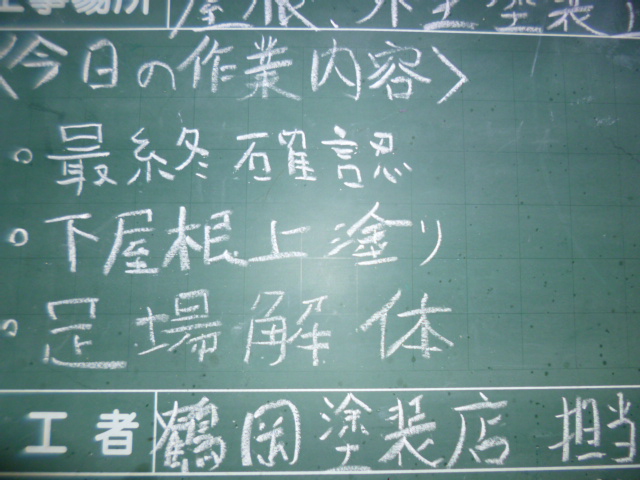 工事場所 屋根、外壁塗装
〈今日の作業内容〉
。最終確認
。下屋根上塗り
。足場解体
工者 鶴岡塗装店 担当